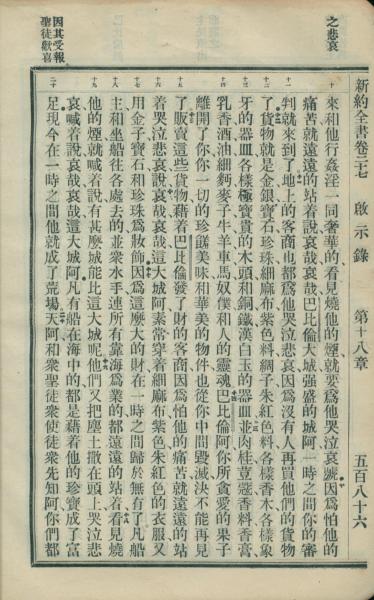 新約全書卷二七　啟示錄　第十八章　五百八十六
之悲哀
因其受報
聖徒歡喜
十 十一 十二 十三 十四 十五 十六 十七 十八 十九 二十
來和他行姦淫一同奢華的看見燒他的煙就要爲他哭泣哀號因爲怕他的
痛苦就遠遠的站着說哀哉哀哉巴比倫大城强盛的城阿一時之間你的審
判就來到了地上的客商也都爲他哭泣悲哀因爲沒有人再買他們的貨物
了貨物就是金銀寶石珍珠細麻布紫色料綢子朱紅色料各樣香木各樣象
牙的器皿各樣極寶貴的木頭和銅鐵漢白玉的器皿並肉桂荳蔻香料香膏
乳香酒油細麪麥子牛羊車馬奴僕和人的靈魂巴比倫阿你所貪愛的果子
離開了你你一切的珍饈美味和華美的物件也從你中間毀滅決不能再見
了販賣這些貨物藉着巴比倫發了財的客商因爲怕他的痛苦就遠遠的站
着哭泣悲哀說哀哉哀哉這大城阿素常穿着細麻布紫色朱紅色的衣服又
用金子寶石和珍珠爲妝飾因爲這麼大的財在一時之間歸於無有了凡船
主和坐船往各處去的並衆水手連所有靠海爲業的都遠遠的站着看見燒
他的煙就喊着說有甚麼城能比這大城呢他們又把塵土撒在頭上哭泣悲
哀喊着說哀哉哀哉這大城阿凡有船在海中的都是藉着他的珍寶成了富
足現今在一時之間他就成了荒場天阿和衆聖徒衆使徒衆先知阿你們都